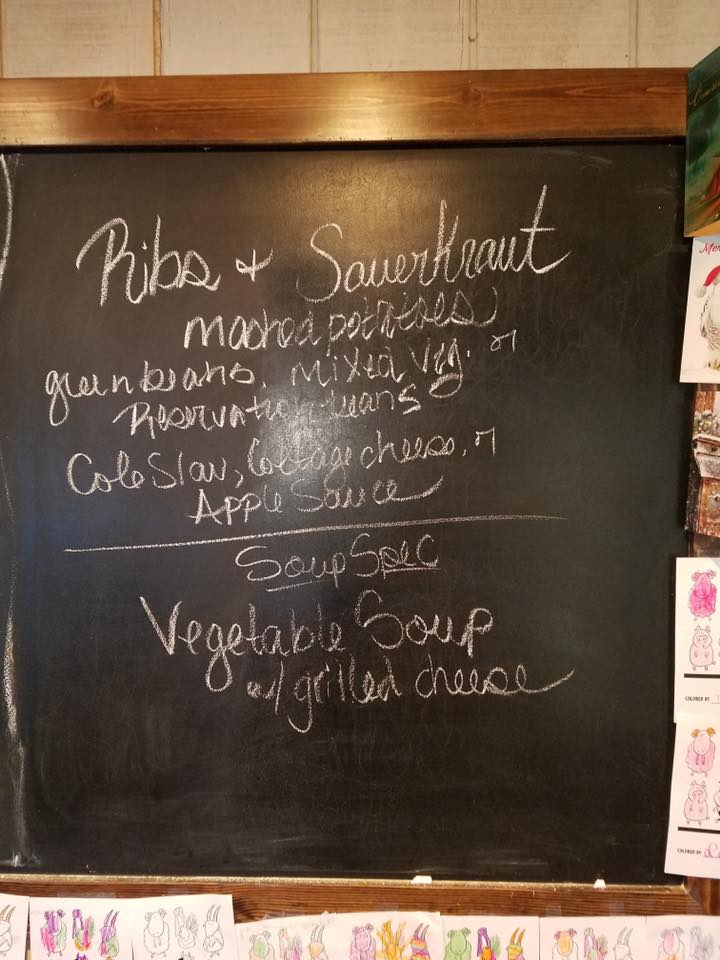 Ribs + SauerKraut
mashed potatoes
green beans, mixed veg. or
Reservation beans
Cole Slaw, Cottage cheese, or
Apple Sauce
Soup Spec
Vegetable Soup
w/ grilled cheese
COLORED BY
COLORED BY